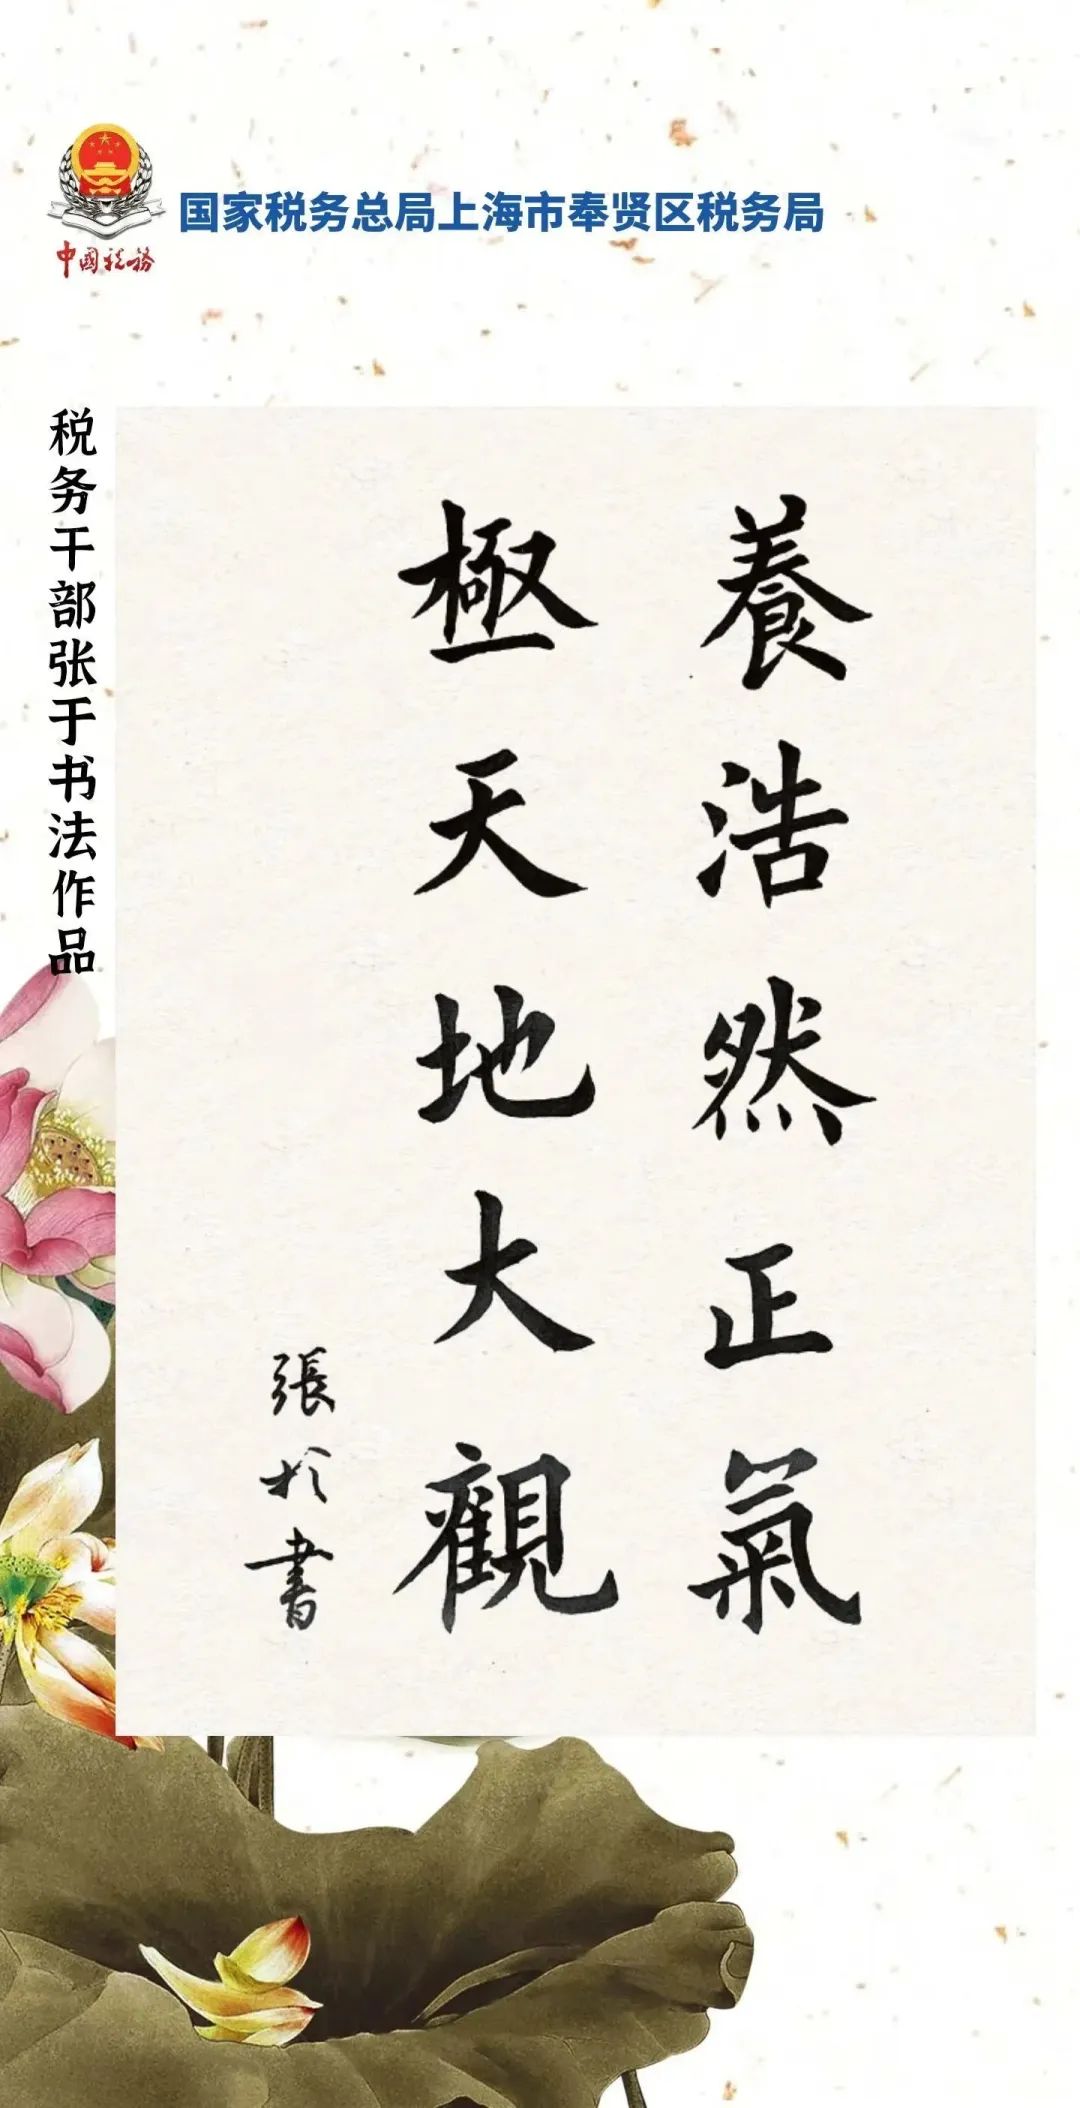 国家税务总局上海市奉贤区税务局
中国税务
税务干部张于书法作品
養浩然正氣
極天地大觀
張於書